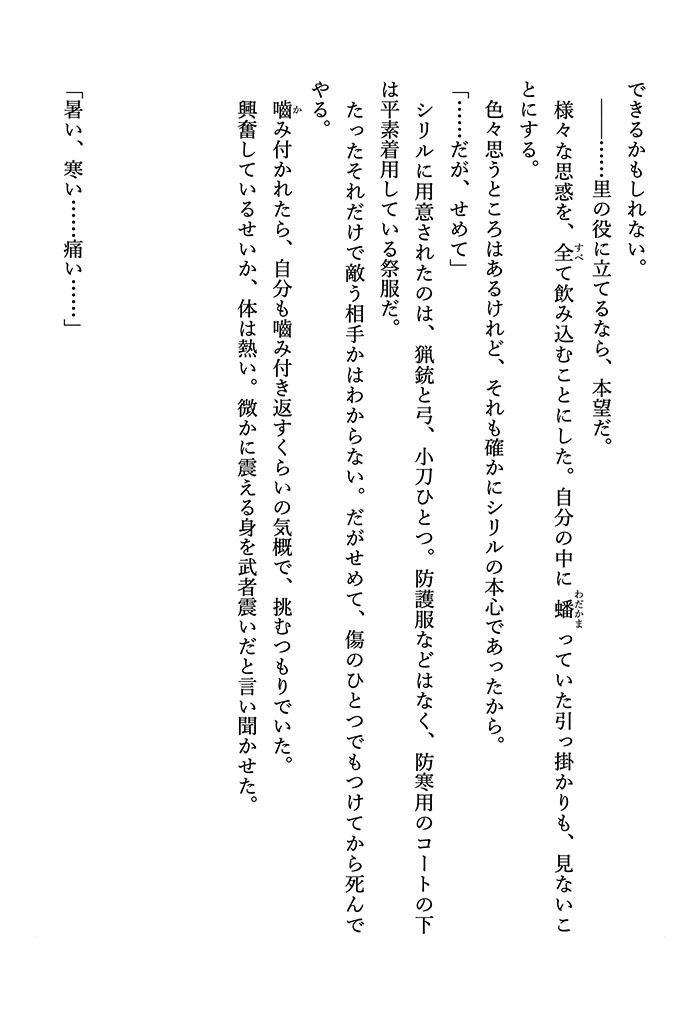 できるかもしれない。
――……里の役に立てるなら、本望だ。
様々な思惑を、全て飲み込むことにした。自分の中に蟠っていた引っ掛かりも、見ないこ
とにする。
色々思うところはあるけれど、それも確かにシリルの本心であったから。
「……だが、せめて」
シリルに用意されたのは、猟銃と弓、小刀ひとつ。防護服などはなく、防寒用のコートの下
は平素着用している祭服だ。
たったそれだけで敵う相手かはわからない。だがせめて、傷のひとつでもつけてから死んで
やる。
嚙み付かれたら、自分も嚙み付き返すくらいの気概で、挑むつもりでいた。
興奮しているせいか、体は熱い。微かに震える身を武者震いだと言い聞かせた。
「暑い、寒い……痛い……」